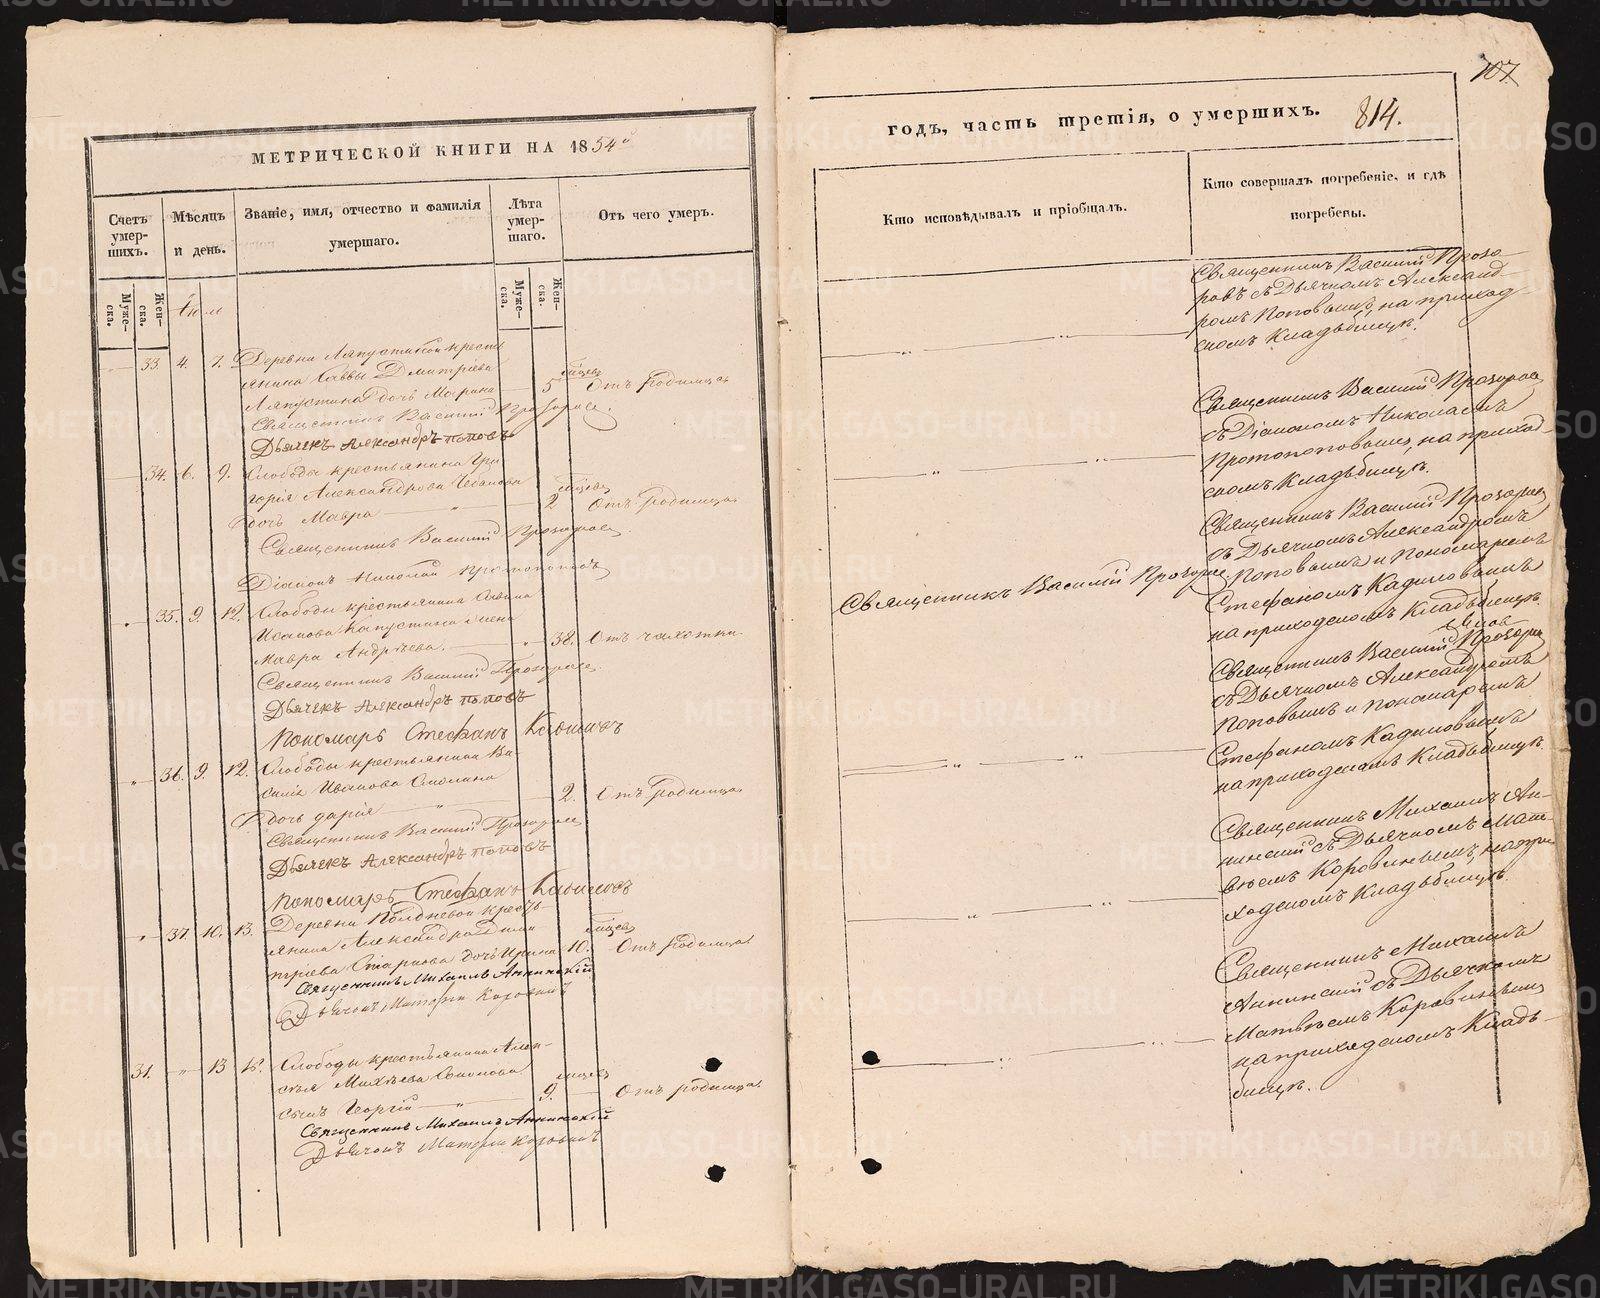 МЕТРИЧЕСКОЙ КНИГИ НА 1854й
Счетъ умер-шихъ.
Мѣсяцъ и день.
Званіе, имя, отчество и фамилія умершаго.
Лѣта умер-шаго.
Отъ чего умеръ.
Муже-ска.
Жен-ска.
Муже-ска.
Жен-ска.
33. 4. 7. Деревни Ляпустиной кресть
янина Саввы Дмитріева
Ляпустина дочь Марина 5 мѣсяц Отъ родимца
Священникъ Василій Прозоровъ
Дьячекъ Александръ Поповъ
34. 6. 9. Слободы крестьянина Гри
горія Александрова
дочь Мавра 2 мѣсяц Отъ родимца
Священникъ Василій Прозоровъ
Діаконъ Николай Протопоповъ
35. 9. 12. Слободы крестьянина
Исакова Капустина жена
Мавра Андреева. 38. Отъ чахотки.
Священникъ Василій Прозоровъ
Дьячекъ Александръ Поповъ
Пономарь Стефанъ Кадиловъ
36. 9. 12. Слободы крестьянина Ва
силія Иванова Смолина
дочь Дарія 2. Отъ родимца.
Священникъ Василій Прозоровъ
Дьячекъ Александръ Поповъ
Пономарь Стефанъ Кадиловъ
37. 10. 13. Деревни Полдневой кресть
янина Александра Дми
тріева Старкова дочь Ирина 10. мѣсяц Отъ родимца.
Священникъ Михаилъ Аннинскій
Дьячокъ Матфей Коровинъ
31. 13 15. Слободы крестьянина Алек-
сѣя Михѣева
сынъ Георгій 9. мѣсяцъ Отъ родимца.
Священникъ Михаилъ Аннинскій
Дьячокъ Матфей Коровинъ
107
годъ, часть третія, о умершихъ. 814.
Кто исповѣдывалъ и пріобщалъ.
Кто совершалъ погребеніе, и гдѣ погребены.
Священникъ Василій Прозо-
ровъ съ Дьячкомъ Александ-
ромъ Поповымъ, на приход-
скомъ Кладьбищѣ.
Священникъ Василій Прозоровъ
съ Діакономъ Николаемъ
Протопоповымъ, на приход-
скомъ Кладьбищѣ.
Священникъ Василій Прозоровъ
Священникъ Василій Прозоровъ
съ Дьячкомъ Александромъ
Поповымъ и Пономаремъ
Стефаномъ Кадиловымъ
на приходскомъ Кладьбищѣ.
Священникъ Василій Прозоровъ
съ Дьячкомъ Александромъ
Поповымъ и Пономаремъ
Стефаномъ Кадиловымъ
на приходскомъ Кладьбищѣ.
Священникъ Михаилъ Ан-
нинскій съ Дьячкомъ Мат-
вѣемъ Коровинымъ, на при
ходскомъ Кладьбищѣ.
Священникъ Михаилъ
Аннинскій съ Дьячкомъ
Матвѣемъ Коровинымъ
на приходскомъ Кладь-
бищѣ.
METRIKI.GASO-URAL.RU